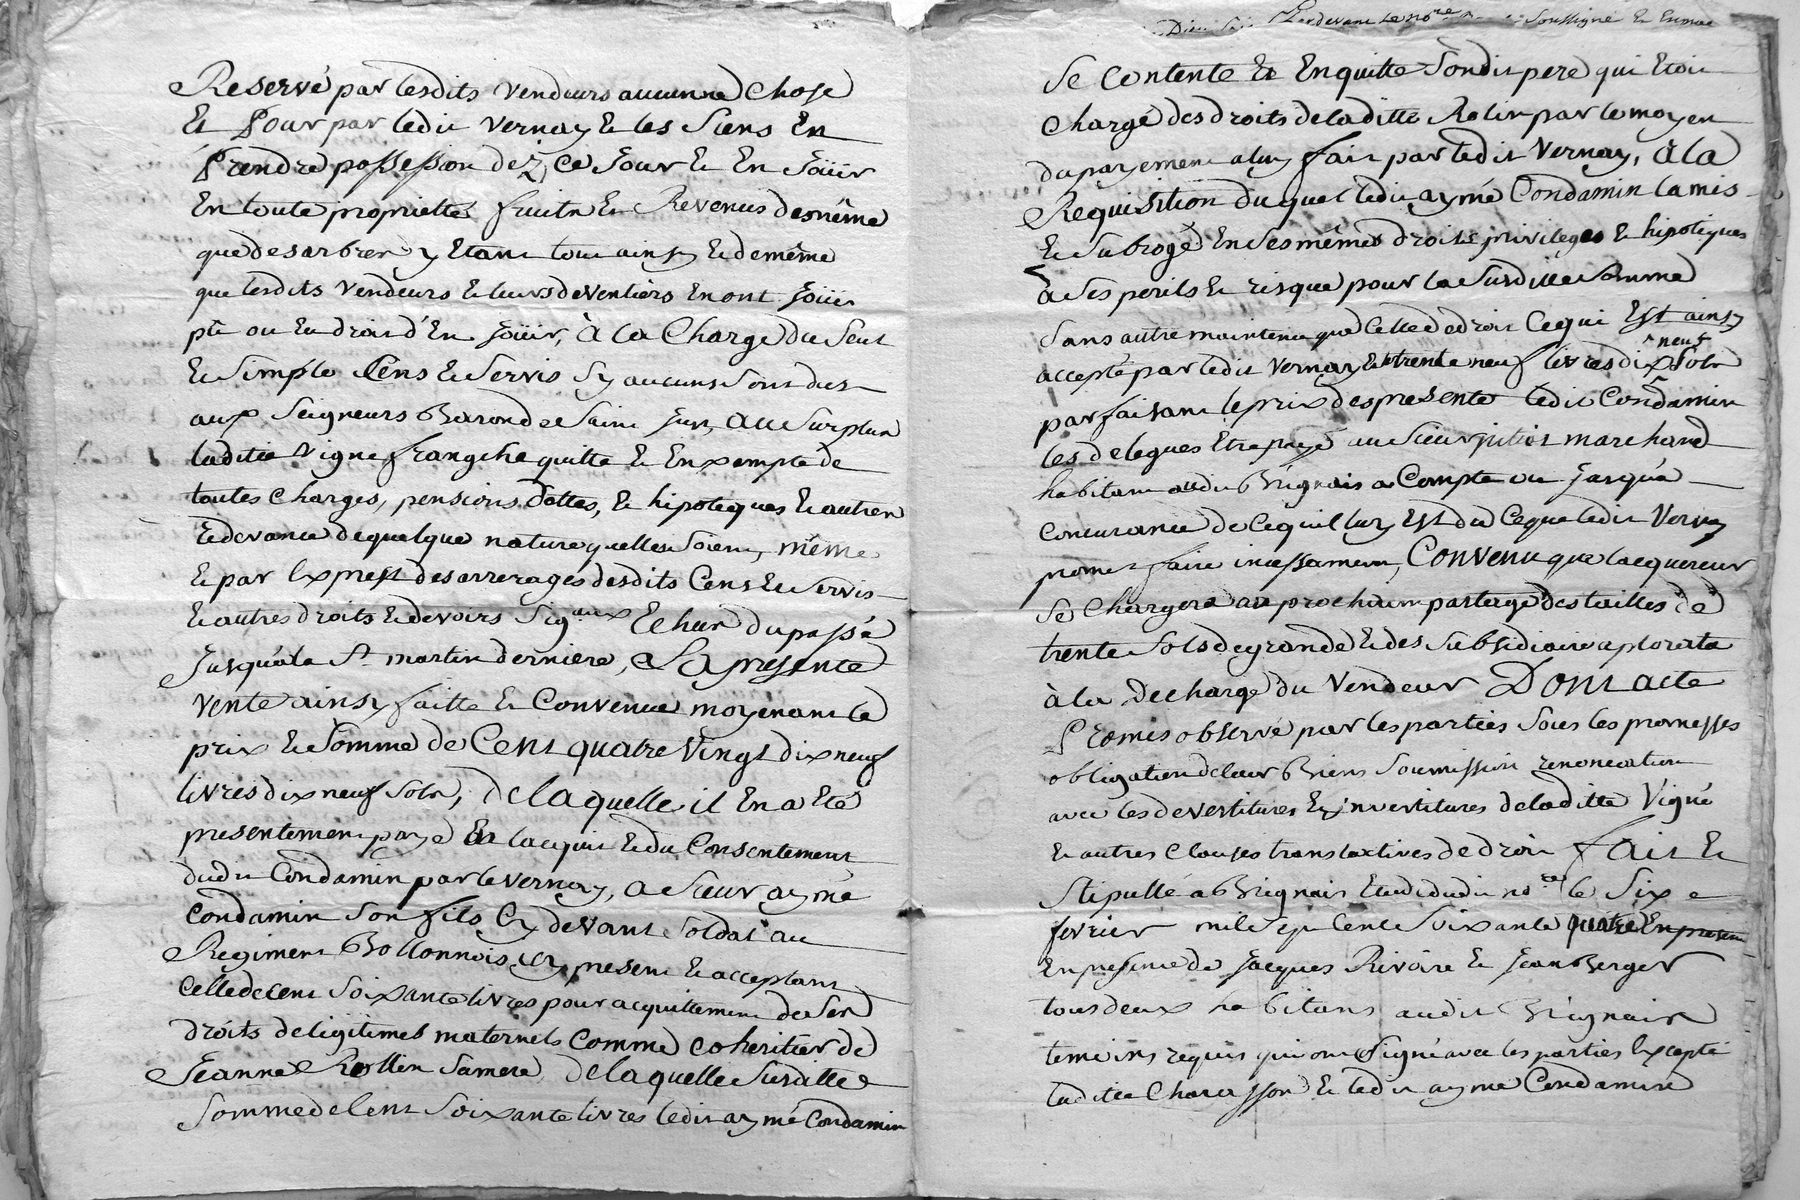 Reservé par lesdits vendeurs aucunne Chose
Et Pour par ledit Vernay Et les Siens En
Prendre possession dez Ce Jour Et En Joüir
En toute propriette fruits Et Revenus de même
que des arbres y Etant tout ainsy Et de même
que lesdits Vendeurs Et leurs deventiers En ont Joüi
pû ou Eu droit d'En Joüir, à la Charge du Seul
Et Simple Cens Et Servis Sy aucuns Sont dus
aux Seigneurs Baron de Saint Jun, au Surplus
laditte Vigne franche quitte Et Enxempte de
toutes Charges, pensions, dettes, Et hipoteques Et autres
Redevance de quelque nature quelles Soient, même
Et par Expres des arrerages desdits Cens Et Servis
Et autres droits Et devoirs Sig.aux Echus du passé
Jusqu'a la St martin derniere, La presente
Vente ainsy faitte Et Convenue moyenant le
prix Et Somme de Cent quatre Vingt dix neuf
livres dix neuf Sols, de laquelle il En a Eté
presentement payé de lacquit Et du Consentement
dudit Condamin par le Vernay, a Sieur aymé
Condamin Son fils Cy devant Soldat au
Regiment Bollonnois, icy present Et acceptant
Celle de Cent Soixante livres pour acquittement de Ses
droits deligitimes maternels Comme Coheritier de
Jeanne Rollin Sa mere, de laquelle Susditte
Somme de Cent Soixante livres ledit aymé Condamin
Pardevant le Nore Soussigné Et En
Se Contente Et En quitte Sondit pere qui Etoit
Chargé des droits de laditte Rolin par le moyen
du payement a luy fait par ledit Vernay, à la
Requisition du quel ledit aymé Condamin la mis
Et Subrogé En Ses mêmes droits privileges Et hipoteques
à Ses perils Et risque pour la Susditte Somme
Sans autre maintenue que Celle de droit Ce qui Est ainsy
accepté par ledit Vernay Et trente neuf livres dix neuf Sols
parfaisant le prix des presente ledit Condamin
les delegues Etre payé au Sieur marchand
habitant audit Brignais a Compte ou Jusqu'a
Concurance de Ce quil luy Est du Ce que ledit Vernay
promet faire incessament, Convenu que lacquereur
Se Chargera au prochain partage des tailles de
trente Sols de grande Et des Subsidiaire a plorata
à la Decharge du Vendeur Dont acte
Promis observé par les parties Sous les promesses
obligation de leur Biens Soumission renonciation
avec les devestitures Et investitures de laditte Vigne
Et autres Clauses translatives de droit fait Et
Stipullé a Brignais Etude dudit nore le Six e
fevrier mil Sept Cent Soixante quatre En presen
En presence de Jacques Rivoire Et Jean Berger
tous deux habitans audit Brignais
temoins requis qui ont Signé avec les parties Excepté
laditte Charasson Et ledit aymé Condamin